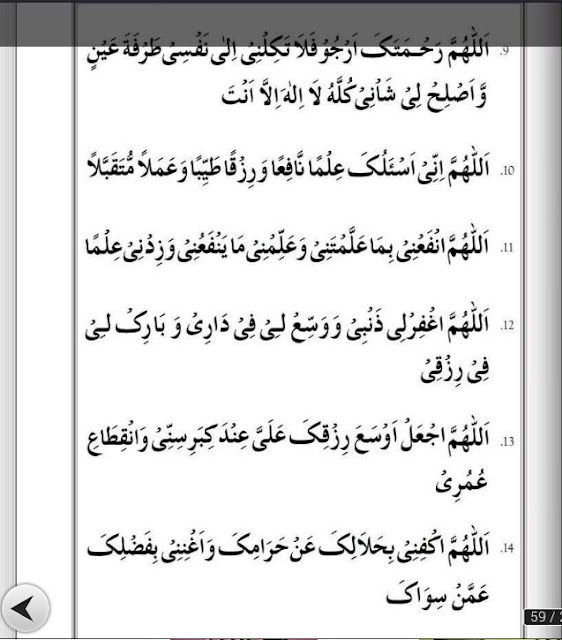 9. اَللّٰهُمَّ رَحْمَتَکَ اَرْجُوْ فَلَا تَکِلْنِیْ اِلٰی نَفْسِیْ طَرْفَةَ عَیْنٍ
وَّاَصْلِحْ لِیْ شَاْنِیْ کُلَّهٗ لَا اِلٰهَ اِلَّا اَنْتَ
10. اَللّٰهُمَّ اِنِّیْ اَسْئَلُکَ عِلْمًا نَّافِعًا وَرِزْقًا طَیِّبًا وَعَمَلاً مُّتَقَبَّلاً
11. اَللّٰهُمَّ انْفَعْنِیْ بِمَا عَلَّمْتَنِیْ وَعَلِّمْنِیْ مَا یَنْفَعُنِیْ وَزِدْنِیْ عِلْمًا
12. اَللّٰهُمَّ اغْفِرْلِی ذَنْبِیْ وَوَسِّعْ لِیْ فِیْ دَارِیْ وَ بَارِکْ لِیْ
فِیْ رِزْقِیْ
13. اَللّٰهُمَّ اجْعَلْ اَوْسَعَ رِزْقِکَ عَلَیَّ عِنْدَ کِبَرِ سِنِّیْ وَانْقِطَاعِ
عُمُرِیْ
14. اَللّٰهُمَّ اکْفِنِیْ بِحَلَالِکَ عَنْ حَرَامِکَ وَاَغْنِنِیْ بِفَضْلِکَ
عَمَّنْ سِوَاکَ
59 / 2